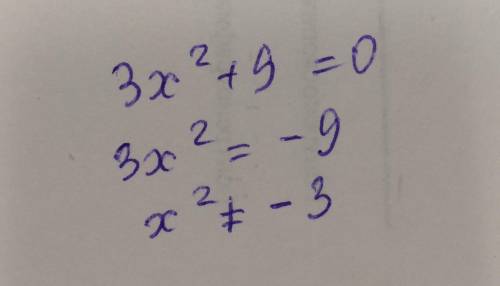 3x² + 9 = 0
3x² = - 9
x² ≠ - 3